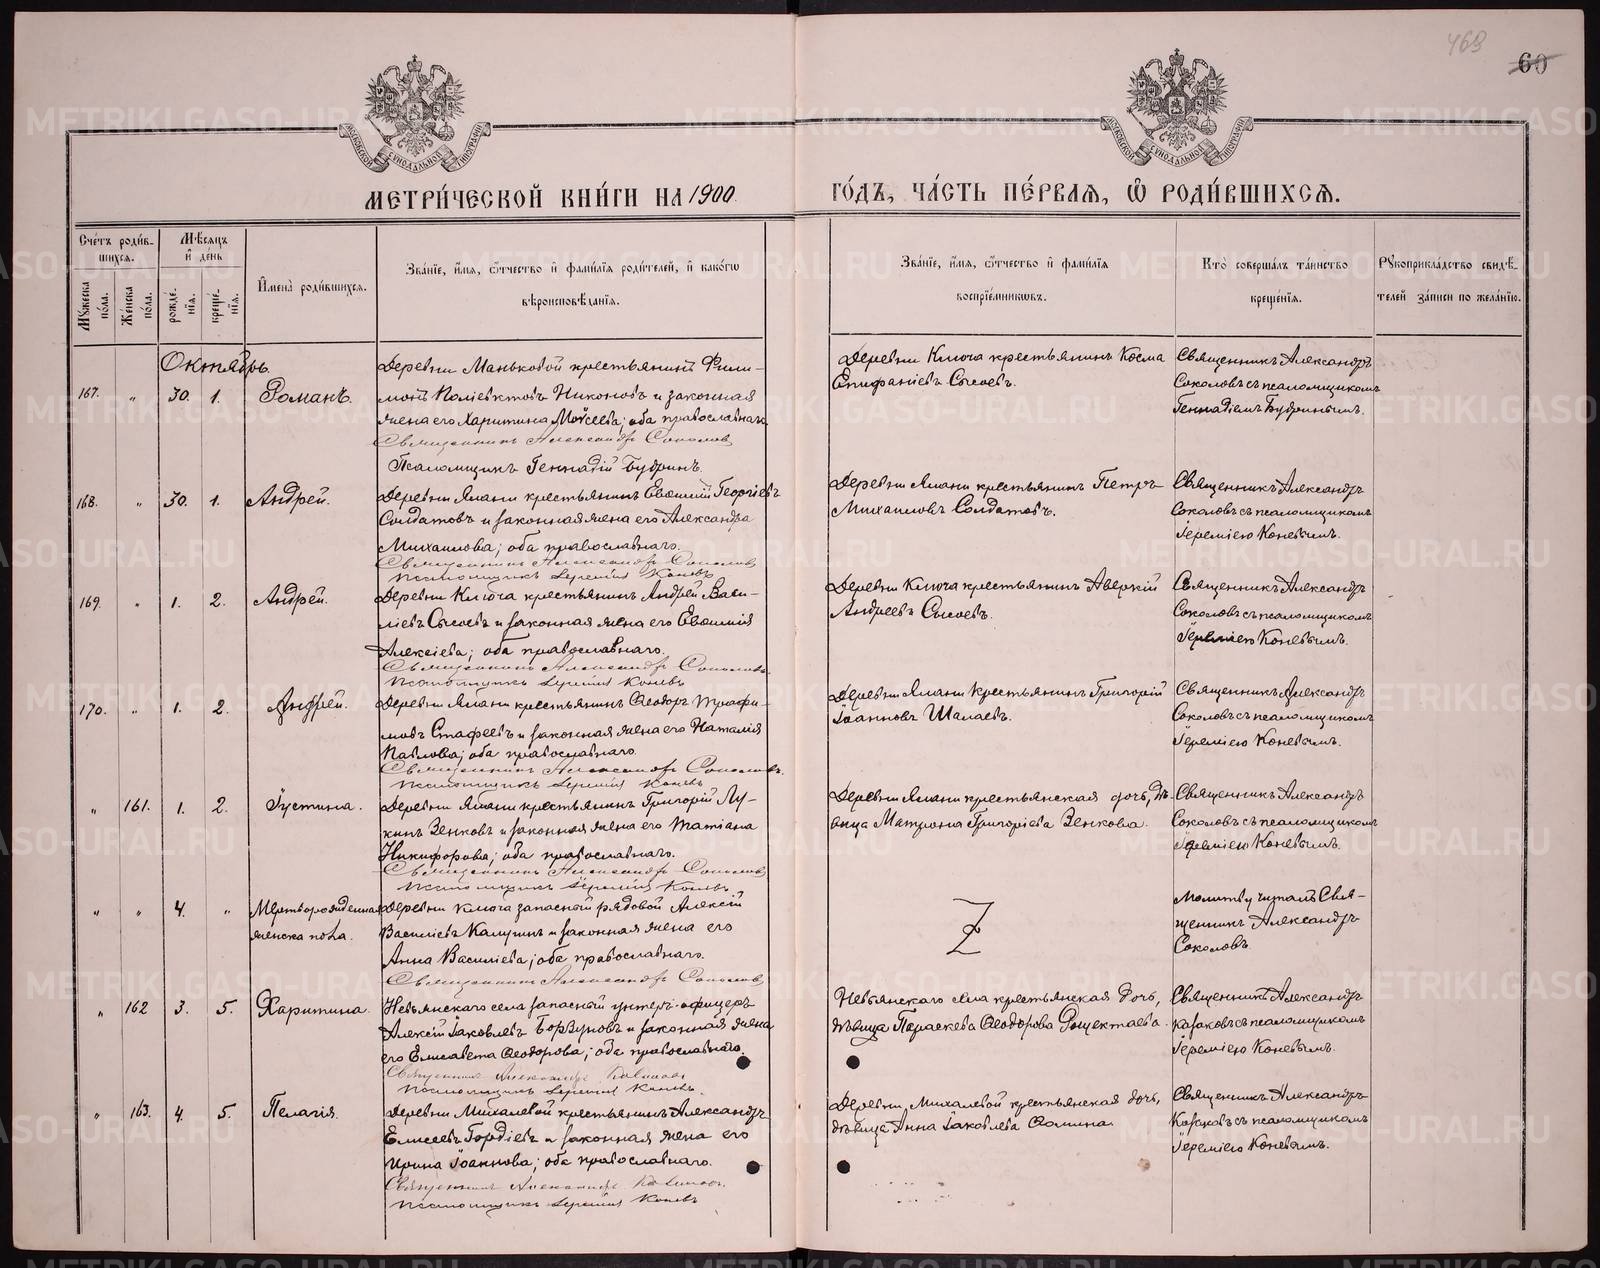 463
60
МЕТРИ́ЧЕСКОЙ КНИ́ГИ НА 1900
ГО́ДЪ, ЧА́СТЬ ПЕ́РВАЯ, Ѽ РОДИ́ВШИХСЯ.
Сче́тъ роди́в-
шихся.
Мѣ́сяцъ
и҆ де́нь
Му́жеска по́ла.
Же́нска по́ла.
рожде́-
нїя.
креще́-
нїя.
И҆мена̀ роди́вшихся.
Зва́нїе, и҆́мя, ѻ҆́тчество и҆ фами́лїя роди́телей, и҆ како́гѡ
вѣроисповѣ́данїя.
Зва́нїе, и҆́мя, ѻ҆́тчество и҆ фами́лїя
воспрїе́мникѡвъ.
Кто̀ соверша́лъ та́инство
креще́нїя.
Рꙋкоприкла́дство свидѣ́-
телей за́писи по жела́нїю.
Октябрь.
167. " 30. 1. Романъ.
Деревни Маньковой крестьянинъ Фили-
монъ Поліевктовъ Никоновъ и законная
жена его Харитина Моѵсеева; оба православнаго.
Священникъ Александръ Соколовъ
Псаломщикъ Геннадій Будринъ.
Деревни Ключа крестьянинъ Косма
Епифаніевъ Сысоевъ.
Священникъ Александръ
Соколовъ съ псаломщикомъ
Геннадіемъ Будринымъ.
168. " 30. 1. Андрей.
Деревни Ялани крестьянинъ Евѳимій Георгіевъ
Солдатовъ и законная жена его Александра
Михаилова; оба православнаго.
Священникъ Александръ Соколовъ
Псаломщикъ Іеремія Коневъ
Деревни Ялани крестьянинъ Петръ
Михаиловъ Солдатовъ.
Священникъ Александръ
Соколовъ съ псаломщикомъ
Іереміею Коневымъ.
169. " 1. 2. Андрей.
Деревни Ключа крестьянинъ Андрей Васи-
ліевъ Сысоевъ и законная жена его Евѳимія
Алексіева; оба православнаго.
Священникъ Александръ Соколовъ
Псаломщикъ Іеремія Коневъ
Деревни Ключа крестьянинъ Аверкій
Андреевъ Сысоевъ.
Священникъ Александръ
Соколовъ съ псаломщикомъ
Іереміею Коневымъ.
170. " 1. 2. Андрей.
Деревни Ялани крестьянинъ Ѳеодоръ Трофи-
мовъ Стафеевъ и законная жена его Наталія
Павлова; оба православнаго.
Священникъ Александръ Соколовъ.
Псаломщикъ Іеремія Коневъ
Деревни Ялани крестьянинъ Григорій
Іоанновъ Шалаевъ.
Священникъ Александръ
Соколовъ съ псаломщикомъ
Іереміею Коневымъ.
" 161. 1. 2. Іустина.
Деревни Ялани крестьянинъ Григорій Лу-
кинъ Зенковъ и законная жена его Татіана
Никифорова; оба православнаго.
Священникъ Александръ Соколовъ
Псаломщикъ Іеремія Коневъ
Деревни Ялани крестьянская дочь, дѣ-
вица Матрона Григоріева Зенкова.
Священникъ Александръ
Соколовъ съ псаломщикомъ
Іереміею Коневымъ.
" " 4. " Мертворожденная
женска пола.
Деревни Ключа запасный рядовой Алексій
Василіевъ Калугинъ и законная жена его
Анна Василіева; оба православнаго.
Священникъ Александръ Соколовъ
Молитву читалъ Свя-
щенникъ Александръ
Соколовъ.
" 162 3. 5. Харитина.
Невьянскаго села запасный унтеръ-офицеръ
Алексій Іаковлевъ Борзуновъ и законная жена
его Елисавета Ѳеодорова; оба православнаго.
Священникъ Александръ Казаковъ
Псаломщикъ Іеремія Коневъ.
Невьянскаго села крестьянская дочь,
дѣвица Параскева Ѳеодорова Рощектаева.
Священникъ Александръ
Казаковъ съ псаломщикомъ
Іереміею Коневымъ.
" 163. 4. 5. Пелагія.
Деревни Михалевой крестьянинъ Александръ
Елисеевъ Гордіевъ и законная жена его
Ирина Іоаннова; оба православнаго.
Священникъ Александръ Казаковъ.
Псаломщикъ Іеремія Коневъ
Деревни Михалевой крестьянская дочь,
дѣвица Анна Іаковлева Ѳомина.
Священникъ Александръ
Казаковъ съ псаломщикомъ
Іереміею Коневымъ.